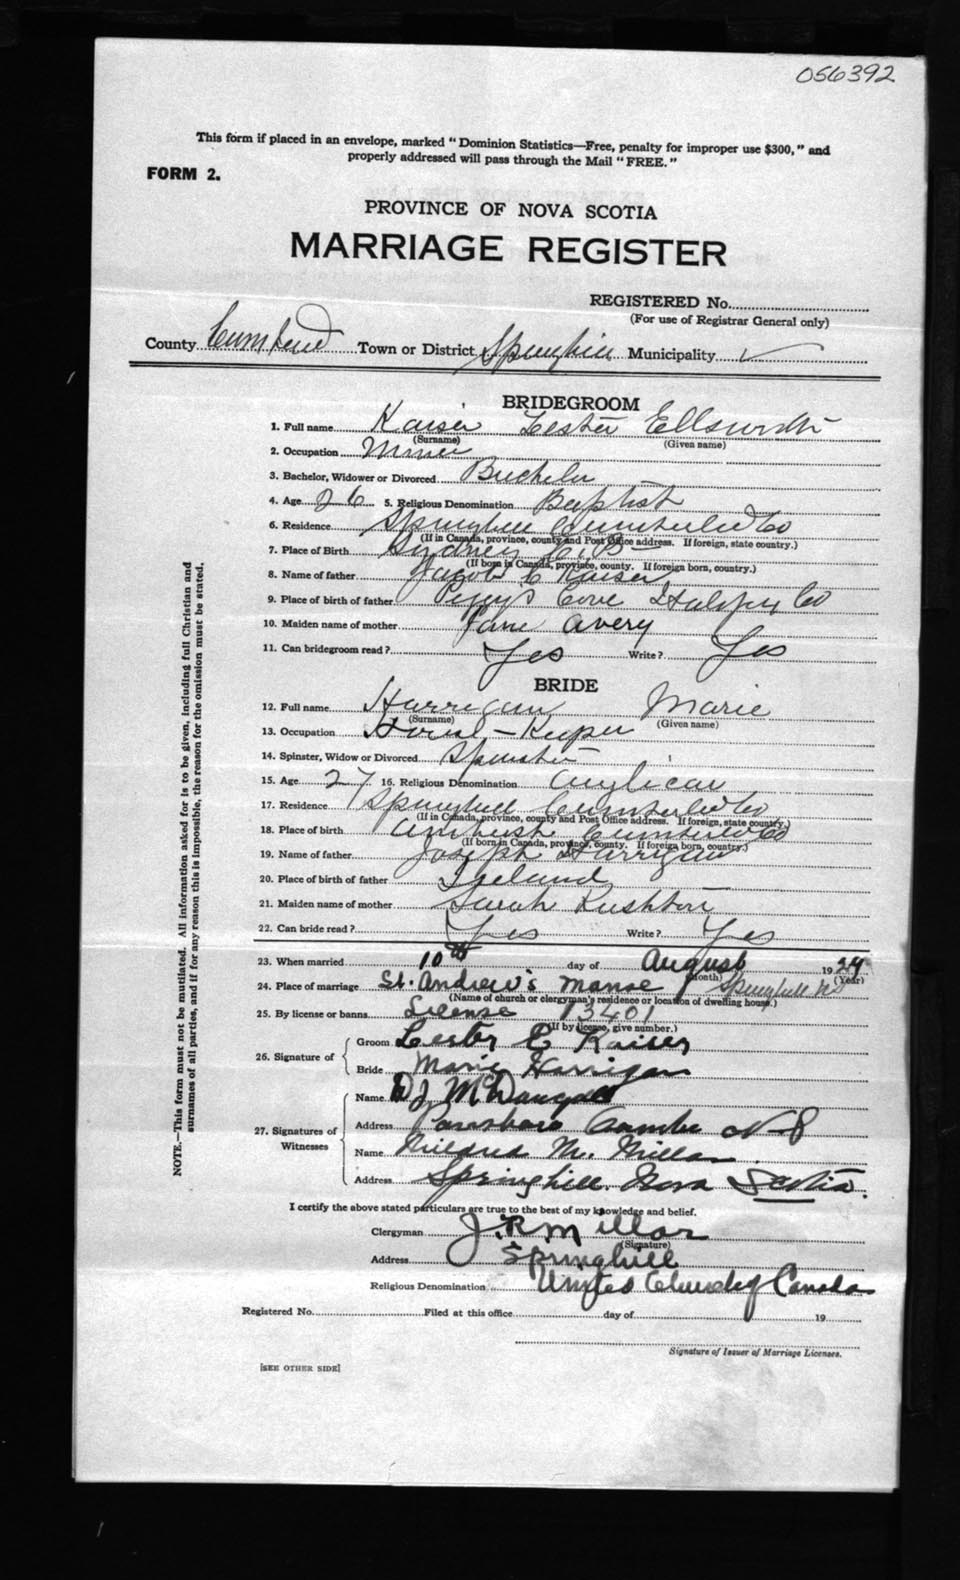 056392
This form if placed in an envelope, marked "Dominion Statistics—Free, penalty for improper use $300," and
properly addressed will pass through the Mail "FREE."
FORM 2.
PROVINCE OF NOVA SCOTIA
MARRIAGE REGISTER
REGISTERED No.
(For use of Registrar General only)
County Town or District Springhill Municipality
BRIDEGROOM
1. Full name Kaiser Lester Ellsworth
(Surname) (Given name)
2. Occupation Miner
3. Bachelor, Widower or Divorced Bachelor
4. Age 26 5. Religious Denomination Baptist
6. Residence Springhill Cumberland Co
(If in Canada, province, county and Post Office address. If foreign, state country.)
7. Place of Birth Sydney C. B.
(If born in Canada, province, county. If foreign born, country.)
8. Name of father Jacob C Kaiser
9. Place of birth of father Peggys Cove Halifax Co
10. Maiden name of mother Jane Avery
11. Can bridegroom read? Yes Write? Yes
BRIDE
12. Full name Harrigan Marie
(Surname) (Given name)
13. Occupation House-Keeper
14. Spinster, Widow or Divorced Spinster
15. Age 27 16. Religious Denomination Anglican
17. Residence Springhill Cumberland Co
(If in Canada, province, county and Post Office address. If foreign, state country.)
18. Place of birth Amherst Cumberland Co
(If born in Canada, province, county. If foreign born, country.)
19. Name of father Joseph Harrigan
20. Place of birth of father Ireland
21. Maiden name of mother Sarah Rushton
22. Can bride read? Yes Write? Yes
23. When married 10th day of August 19
(Month) (Year)
24. Place of marriage St. Andrew's Manse Springhill NS
(Name of church or clergyman's residence or location of dwelling house.)
25. By license or banns License 13401
(If by license, give number.)
26. Signature of Groom Lester E Kaiser
Bride Marie Harrigan
27. Signatures of Witnesses
Name D J McDougall
Address Parrsboro Cumb. N.S
Name Mildred M. Millar
Address Springhill. Nova Scotia.
I certify the above stated particulars are true to the best of my knowledge and belief.
Clergyman J. R. Millar
(Signature)
Address Springhill
Religious Denomination United Church of Canada
Registered No. Filed at this office day of 19
Signature of Issuer of Marriage Licenses.
[SEE OTHER SIDE]
NOTE.—This form must not be mutilated. All information asked for is to be given, including full Christian and
surnames of all parties, and if for any reason this is impossible, the reason for the omission must be stated.